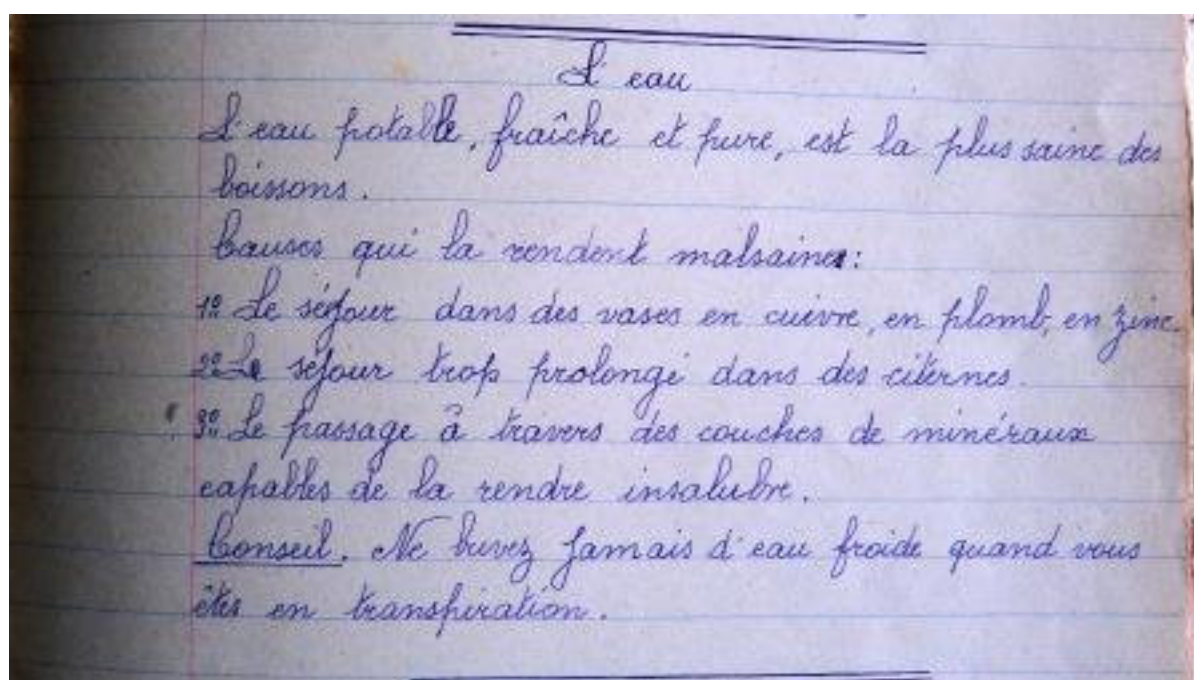 L'eau
L'eau potable, fraîche et pure, est la plus saine des
boissons.
Causes qui la rendent malsaine:
1º Le séjour dans des vases en cuivre, en plomb, en zinc.
2º Le séjour trop prolongé dans des citernes.
3º Le passage à travers des couches de minéraux
capables de la rendre insalubre.
Conseil. Ne buvez jamais d'eau froide quand vous
êtes en transpiration.